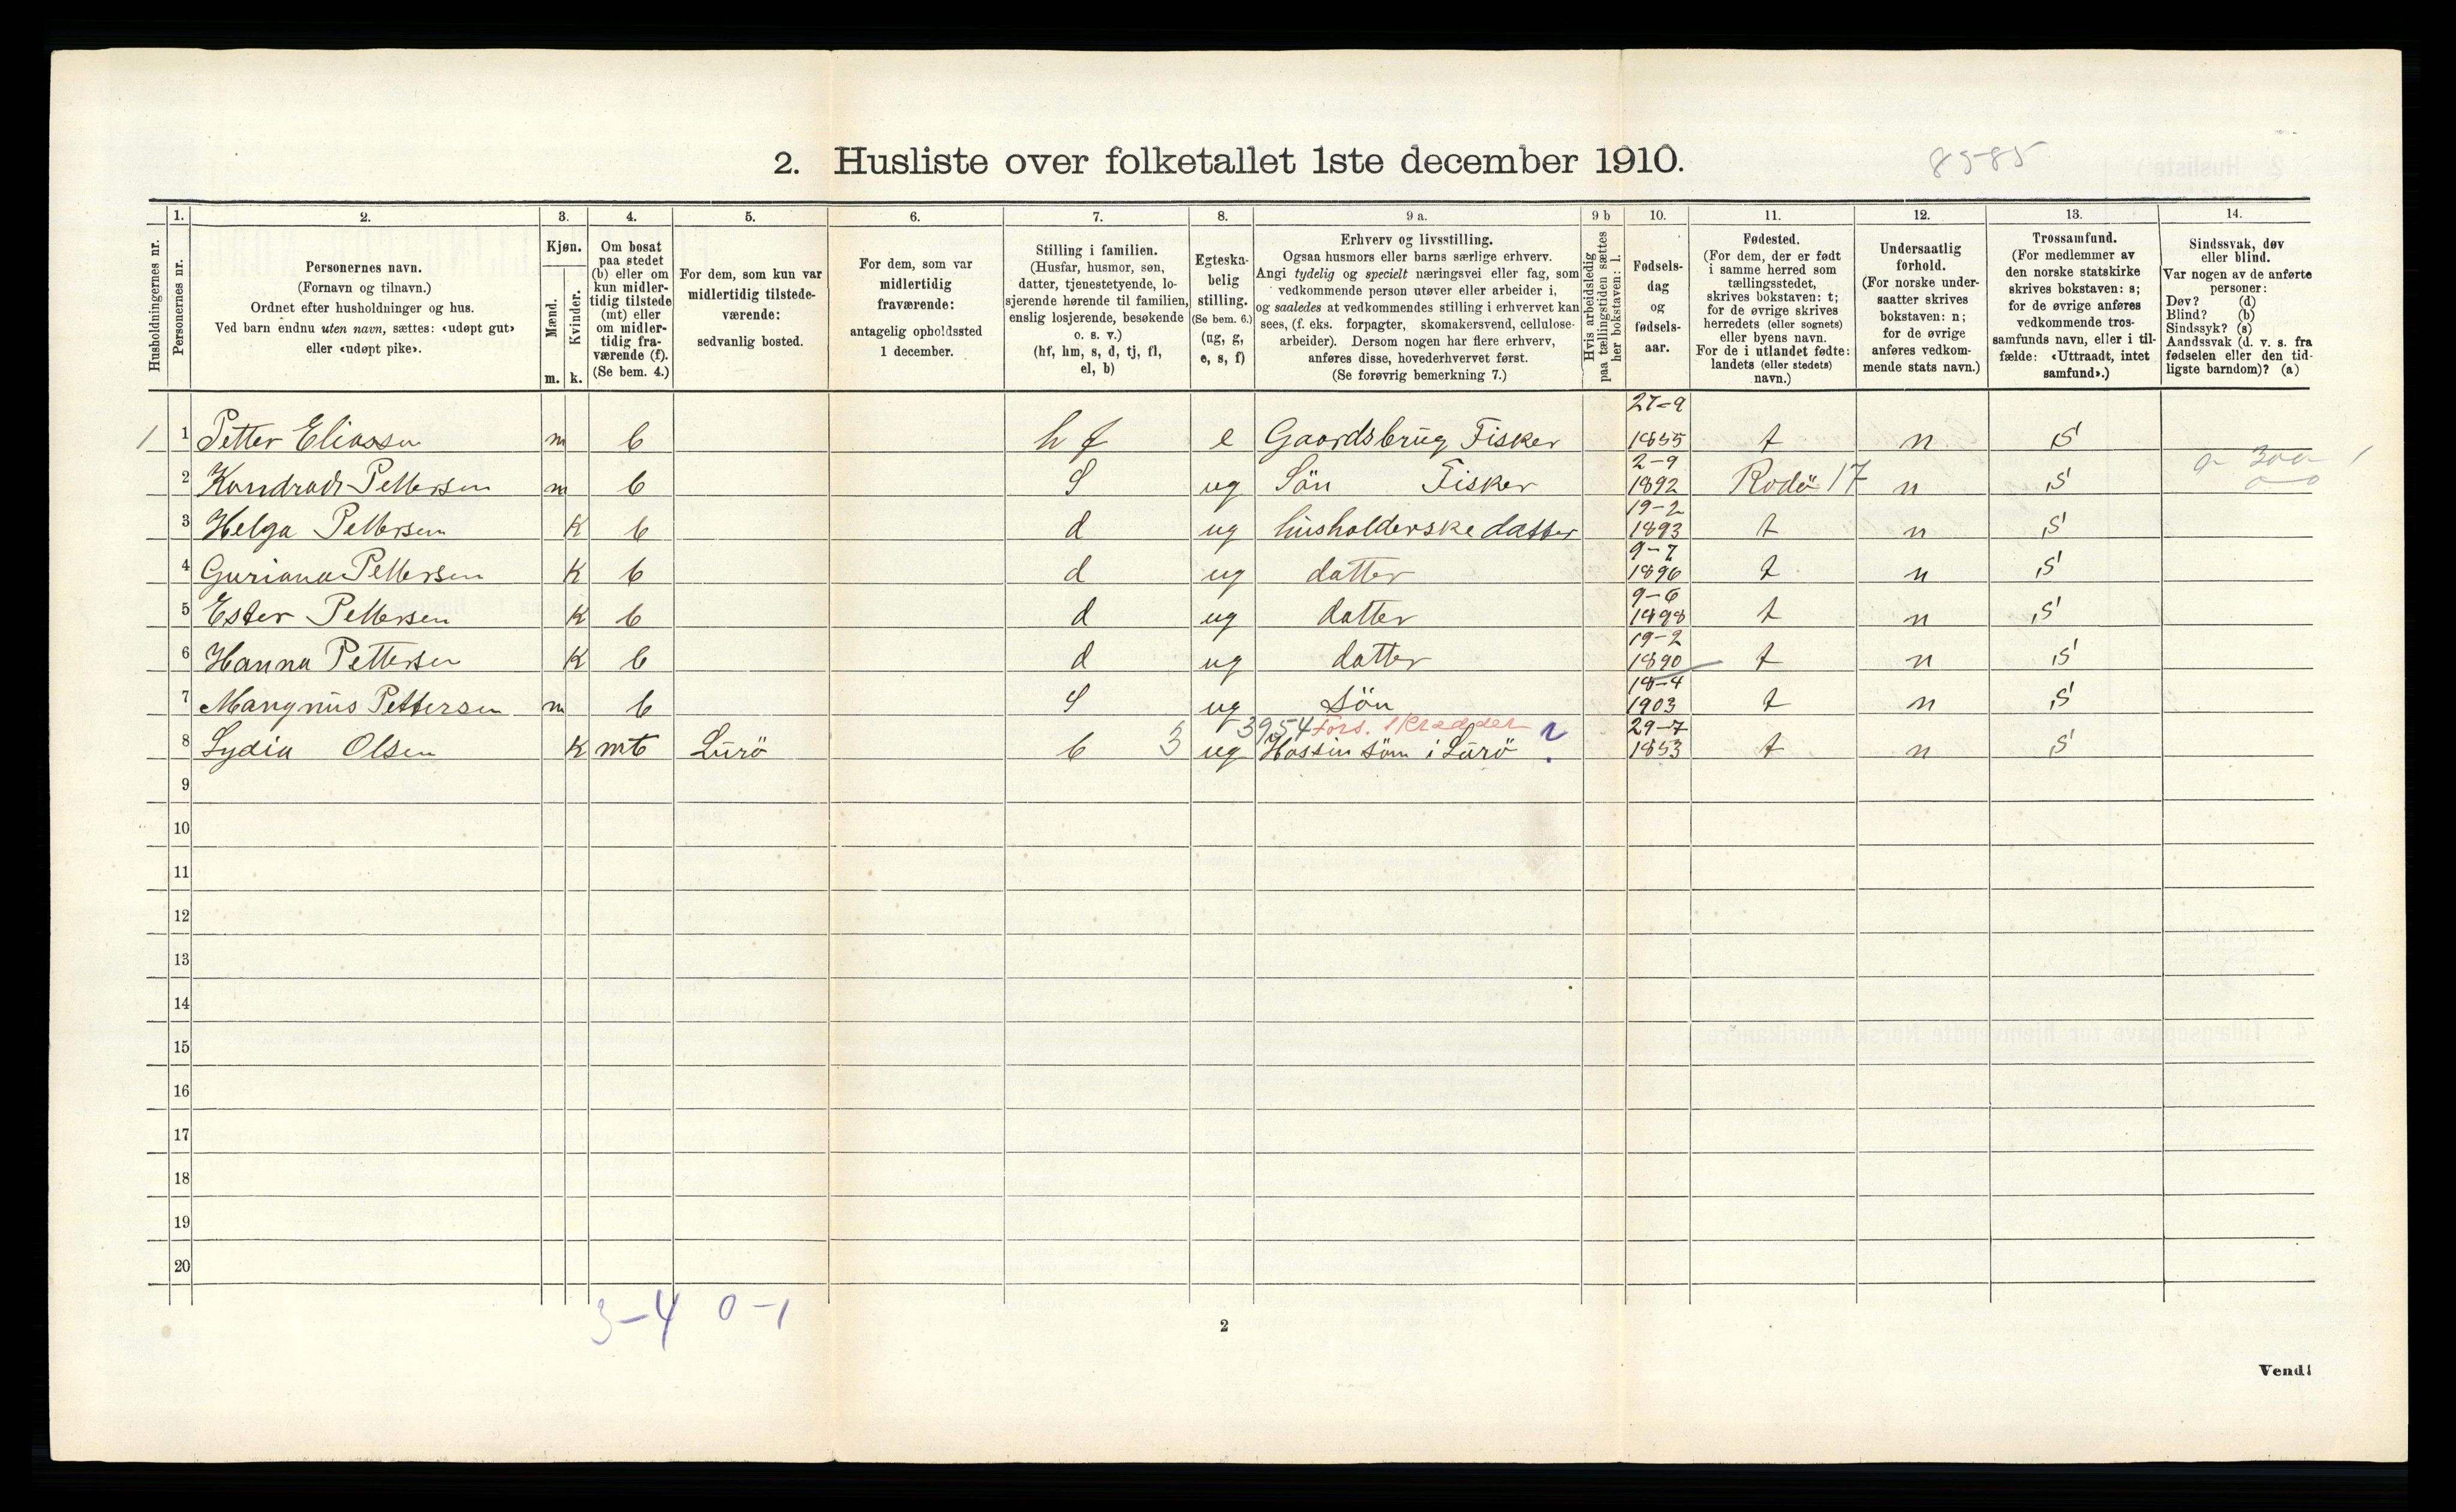 2. Husliste over folketallet 1ste december 1910.
8585
Husholdningernes nr.
1.
Personernes nr.
2.
Personernes navn.
(Fornavn og tilnavn.)
Ordnet efter husholdninger og hus.
Ved barn endnu uten navn, sættes: «udøpt gut»
eller «udøpt pike».
3.
Kjøn.
Mænd.
Kvinder.
m. k.
4.
Om bosat
paa stedet
(b) eller om
kun midler-
tidig tilstede
(mt) eller
om midler-
tidig fra-
værende (f).
(Se bem. 4.)
5.
For dem, som kun var
midlertidig tilstede-
værende:
sedvanlig bosted.
6.
For dem, som var
midlertidig
fraværende:
antagelig opholdssted
1 december.
7.
Stilling i familien.
(Husfar, husmor, søn,
datter, tjenestetyende, lo-
sjerende hørende til familien,
enslig losjerende, besøkende
o. s. v.)
(hf, hm, s, d, tj, fl,
el, b)
8.
Egteska-
belig
stilling.
(Se bem. 6.)
(ug, g,
e, s, f)
9 a.
Erhverv og livsstilling.
Ogsaa husmors eller barns særlige erhverv.
Angi tydelig og specielt næringsvei eller fag, som
vedkommende person utøver eller arbeider i,
og saaledes at vedkommendes stilling i erhvervet kan
sees, (f. eks. forpagter, skomakersvend, cellulose-
arbeider). Dersom nogen har flere erhverv,
anføres disse, hovederhvervet først.
(Se forøvrig bemerkning 7.)
9 b
Hvis arbeidsledig
paa tællingstiden sættes
her bokstaven: l.
10.
Fødsels-
dag
og
fødsels-
aar.
11.
Fødested.
(For dem, der er født
i samme herred som
tællingsstedet,
skrives bokstaven: t;
for de øvrige skrives
herredets (eller sognets)
eller byens navn.
For de i utlandet fødte:
landets (eller stedets)
navn.)
12.
Undersaatlig
forhold.
(For norske under-
saatter skrives
bokstaven: n;
for de øvrige
anføres vedkom-
mende stats navn.)
13.
Trossamfund.
(For medlemmer av
den norske statskirke
skrives bokstaven: s;
for de øvrige anføres
vedkommende tros-
samfunds navn, eller i til-
fælde: «Uttraadt, intet
samfund».)
14.
Sindssvak, døv
eller blind.
Var nogen av de anførte
personer:
Døv? (d)
Blind? (b)
Sindssyk? (s)
Aandssvak (d. v. s. fra
fødselen eller den tid-
ligste barndom)? (a)
1 1 Petter Eliassen m b hf e Gaardsbrug Fisker 27-9 1855 t n S
2 Kondradr Pettersen m b S ug Sön Fisker 2-9 1892 Rodö 17 n S
3 Helga Pettersen K b d ug husholderske datter 19-2 1893 t n S
4 Guriana Pettersen K b d ug datter 9-7 1896 t n S
5 Ester Pettersen K b d ug datter 9-6 1898 t n S
6 Hanna Pettersen K b d ug datter 19-2 1890 t n S
7 Mangnus Pettersen m b S ug Sön 18-4 1903 t n S
3954 Fors. 1 Kræpdet ?
8 Lydia Olsen K mt Lurö b 3 ug Hossin söm i Lurö 29-7 1853 t n S
9
10
11
12
13
14
15
16
17
18
19
20
3-4 0-1
2
Vend!